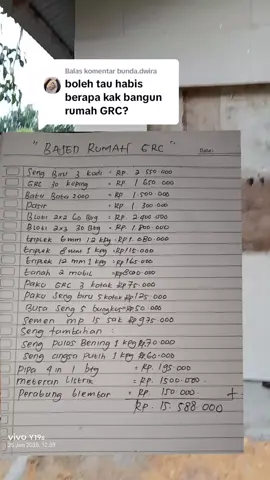 Balas komentar bunda.dwira
boleh tau habis
berapa kak bangun
rumah GRC?
" BAJED RUMAH GRC "
Date:
Seng Biru 3 kodi = RP 2 550.000
GRC 30 keping = RP 1 650 000
Batu Bata 2000 = RP 1.500.000
Pasir = RP 1 300 000
Bloti 2x2 60 Btg = RP 2.400.000
Bloti 2x3 30 Btg = RP 1.800.000
triplek 6mm 12 kpg = RP 1.080.000
triplek 8mm 1 kpg = Rp 115.000
triplek 12 mm 1 kpg = Rp 165.000
tanah 2 mobil = Rp 800.000
Paku GRC 3 kotak Rp 75.000
Paku Seng biru 5 kotak Rp 125 000
Busa seng 5 bungkus Rp 50 000
Semen mp 15 sak Rp 975.000
Seng tambahan :
Seng pulos Bening 1 kpg Rp 70 000
Seng cingso Putih 1 kpg Rp 60.000
Pipa 4 in 1 btg = RP. 195 000
Meteran Listrik = Rp. 1500.000
Perabung 6 lembar = RP. 150 000 +
RP. 15. 588 000
vivo Y19s